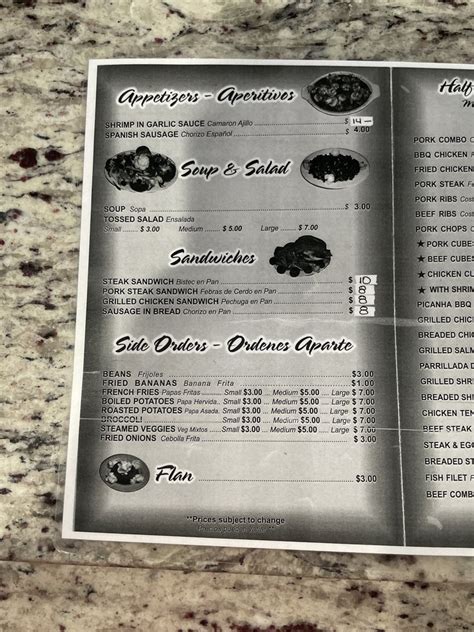 Appetizers - Aperitivos
SHRIMP IN GARLIC SAUCE Camaron Ajillo $ 14-
SPANISH SAUSAGE Chorizo Español $ 4.00
Soup & Salad
SOUP Sopa $ 3.00
TOSSED SALAD Ensalada
Small ....... $ 3.00 Medium ....... $ 5.00 Large ....... $ 7.00
Sandwiches
STEAK SANDWICH Bistec en Pan $ 10
PORK STEAK SANDWICH Febras de Cerdo en Pan $ 8
GRILLED CHICKEN SANDWICH Pechuga en Pan $ 8
SAUSAGE IN BREAD Chorizo en Pan $ 8
Side Orders - Ordenes Aparte
BEANS Frijoles $3.00
FRIED BANANAS Banana Frita $1.00
FRENCH FRIES Papas Fritas Small $3.00 ... Medium $5.00 ... Large $ 7.00
BOILED POTATOES Papa Hervida Small $3.00 ... Medium $5.00 ... Large $ 7.00
ROASTED POTATOES Papa Asada. Small $3.00 ... Medium $5.00 ... Large $ 7.00
BROCCOLI Small $3.00 ... Medium $5.00 ... Large $ 7.00
STEAMED VEGGIES Veg Mixtos Small $3.00 ... Medium $5.00 ... Large $ 7.00
FRIED ONIONS Cebolla Frita Small $3.00 ... Medium $5.00 ... Large $ 7.00
Flan $3.00
**Prices subject to change
Half
PORK COMBO
BBQ CHICKEN
FRIED CHICKEN
PORK STEAK
PORK RIBS
BEEF RIBS
PORK CHOPS
★ PORK CUBES
★ BEEF CUBES
★ CHICKEN
★ WITH SHRIM
PICANHA BBQ
GRILLED CHIC
BREADED CHI
GRILLED SALM
PARRILLADA
GRILLED SHR
BREADED SHR
CHICKEN TEN
BEEF STEAK
STEAK & EGG
BREADED ST
FISH FILET
BEEF COMB